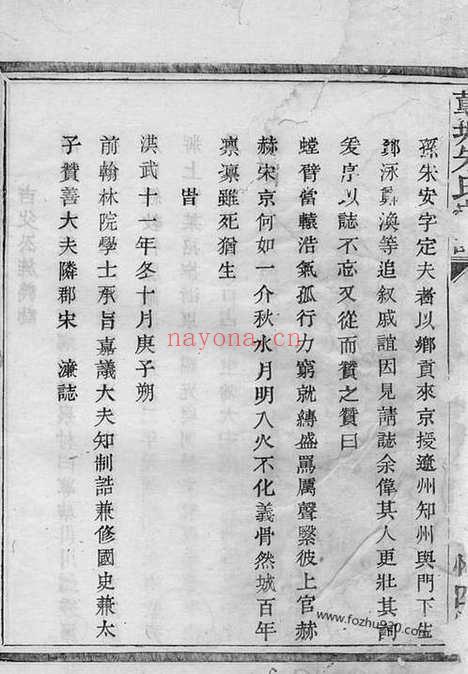 孫朱安字定夫者以鄉貢來京授遼州知州與門下生
鄭泳鄭渙等追叙戚誼因見請誌余偉其人更壯其詞
爰享以誌不忘又從而贊之贊曰
螳臂當轅浩氣孤行力窮就縛盛罵厲聲緊彼上官赫
赫宋京何如一介秋水月明入火不化義骨然城百年
凜凜雖死猶生
旹
洪武十一年冬十月庚子朔
前翰林院學士承旨嘉議大夫知制誥兼修國史兼太
子贊善大夫隣郡宋濂誌
nayona.cn
www.fozhu920.com